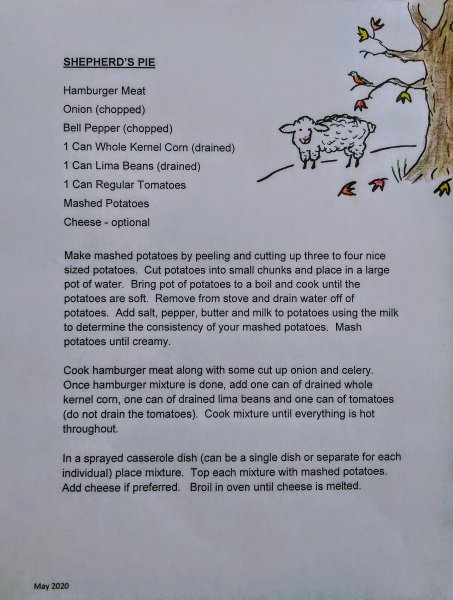 SHEPHERD'S PIE
Hamburger Meat
Onion (chopped)
Bell Pepper (chopped)
1 Can Whole Kernel Corn (drained)
1 Can Lima Beans (drained)
1 Can Regular Tomatoes
Mashed Potatoes
Cheese - optional
Make mashed potatoes by peeling and cutting up three to four nice
sized potatoes.  Cut potatoes into small chunks and place in a large
pot of water.  Bring pot of potatoes to a boil and cook until the
potatoes are soft.  Remove from stove and drain water off of
potatoes.  Add salt, pepper, butter and milk to potatoes using the milk
to determine the consistency of your mashed potatoes.  Mash
potatoes until creamy.
Cook hamburger meat along with some cut up onion and celery.
Once hamburger mixture is done, add one can of drained whole
kernel corn, one can of drained lima beans and one can of tomatoes
(do not drain the tomatoes).  Cook mixture until everything is hot
throughout.
In a sprayed casserole dish (can be a single dish or separate for each
individual) place mixture.  Top each mixture with mashed potatoes.
Add cheese if preferred.   Broil in oven until cheese is melted.
May 2020